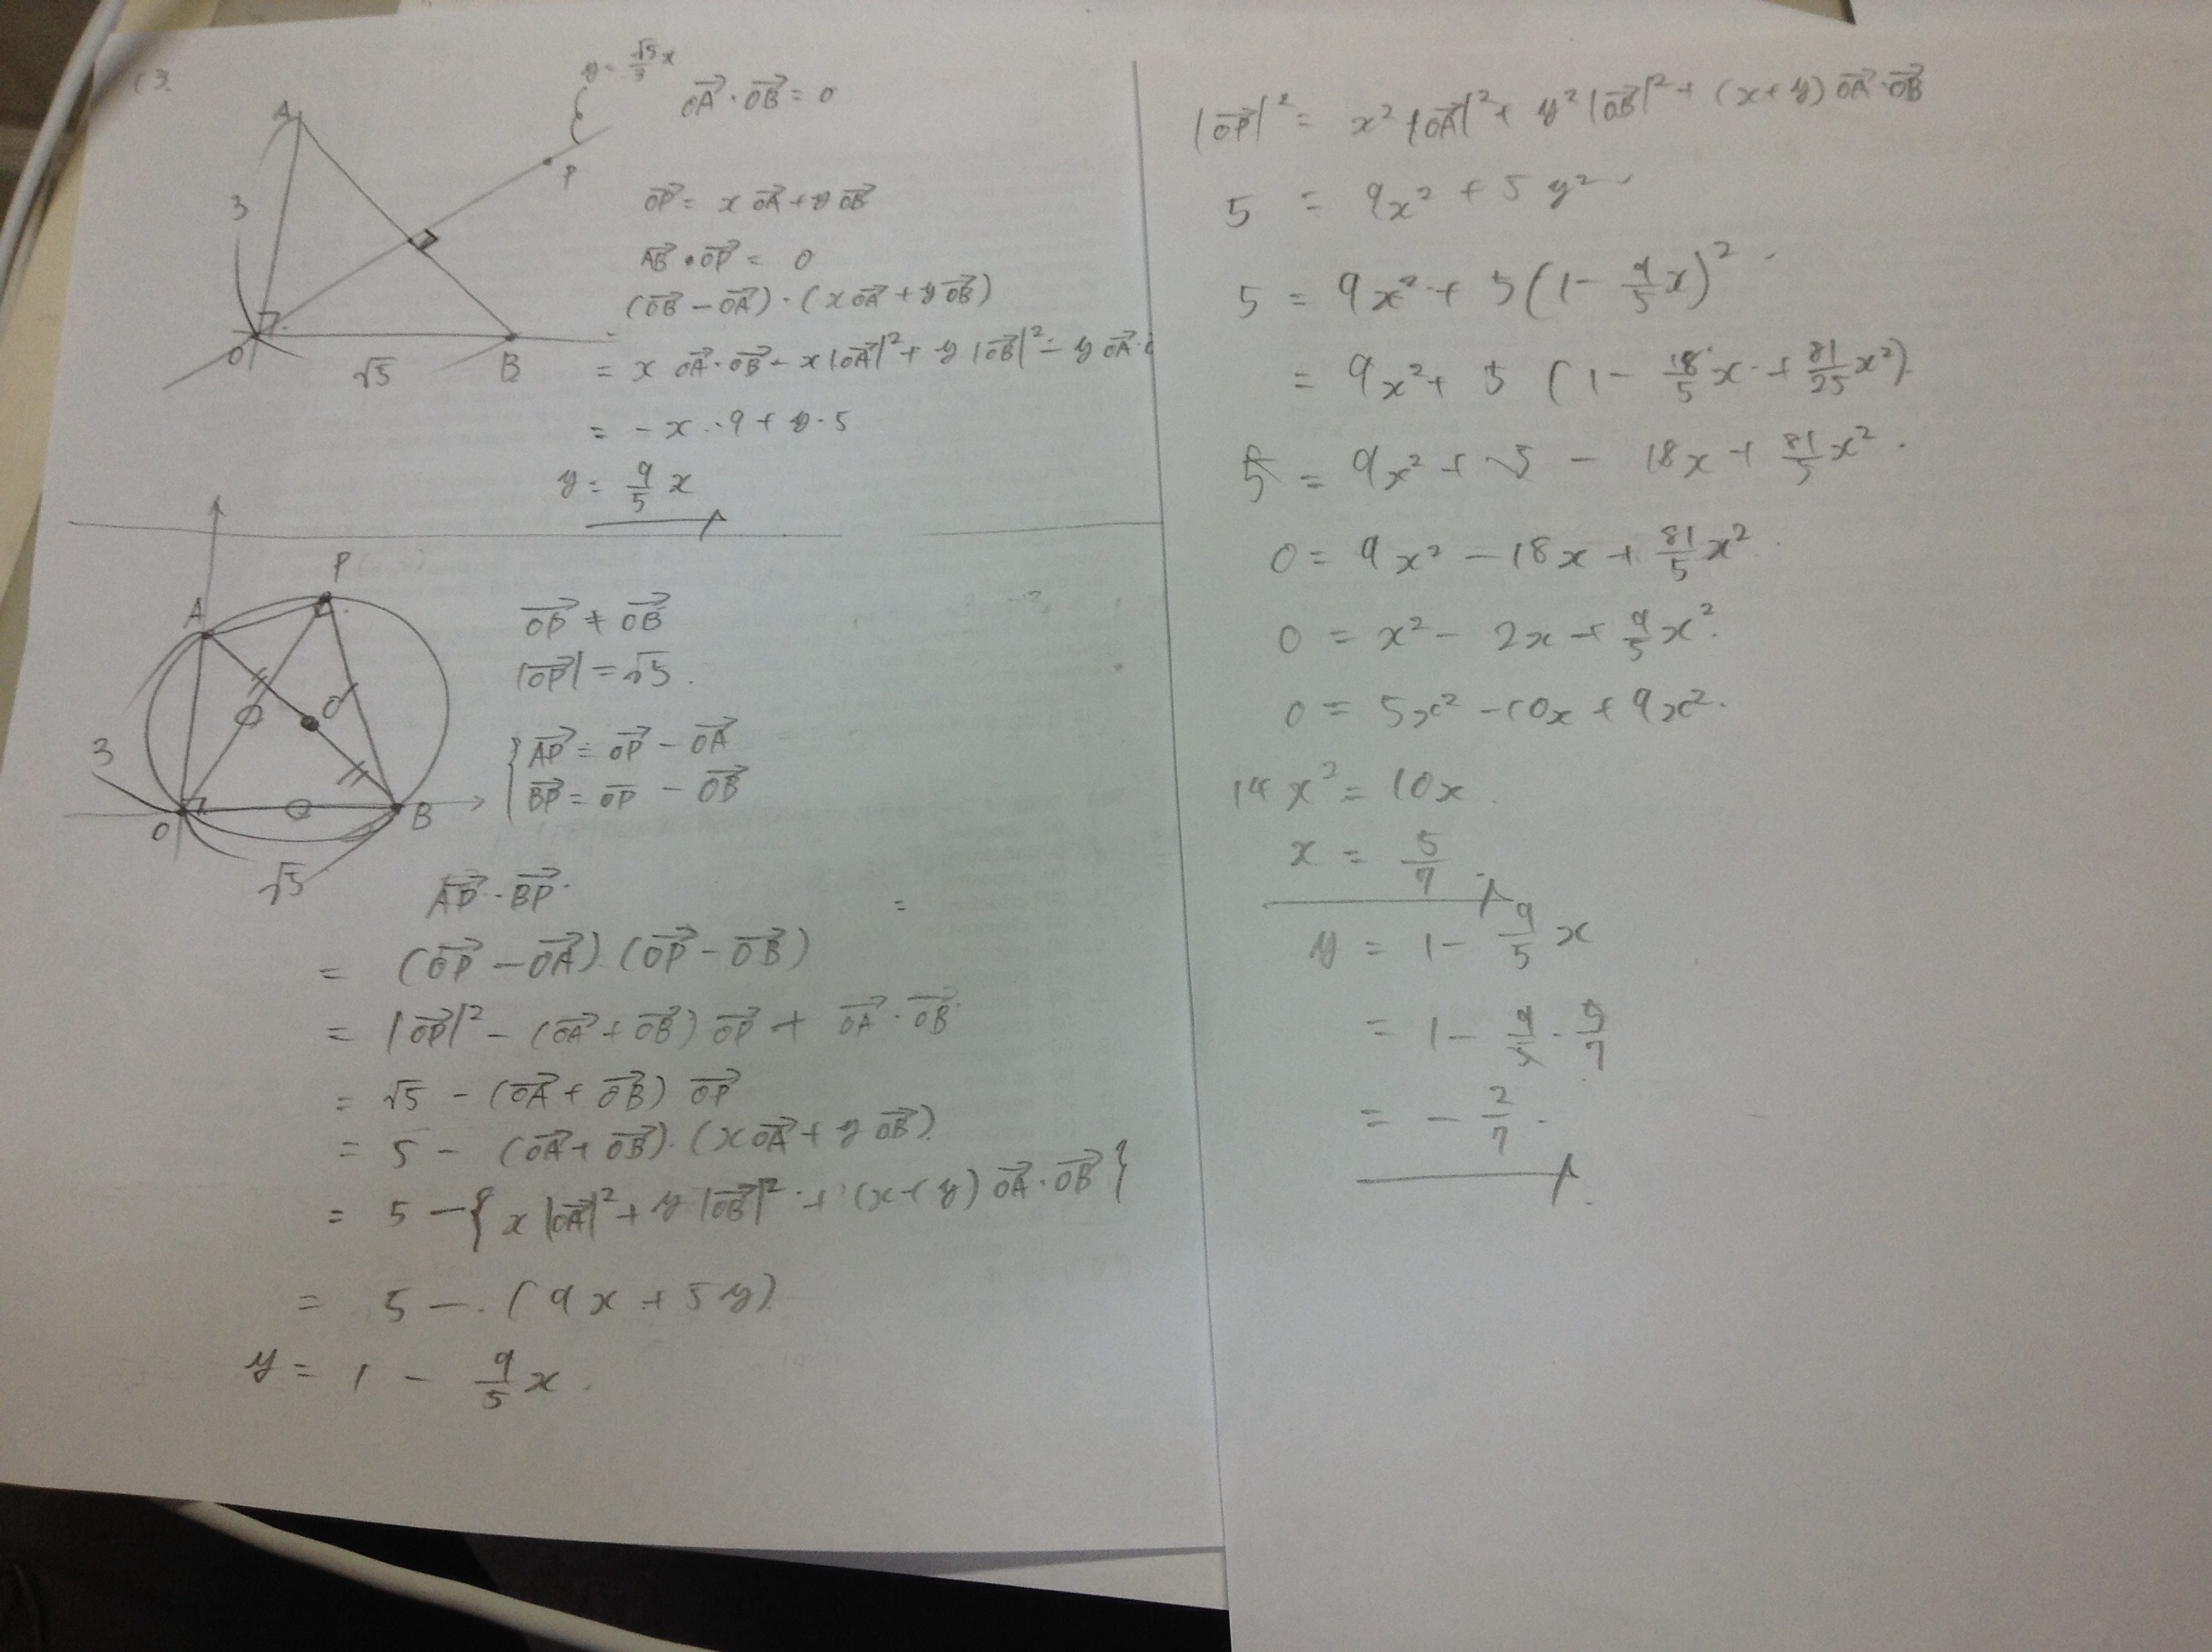 (3)
y = √5/3 x
OA→ · OB→ = 0
A
P
3
O
√5
B
OP→ = x OA→ + y OB→
AB→ · OP→ = 0
(OB→ − OA→) · (x OA→ + y OB→)
= x OA→ · OB→ − x|OA→|² + y|OB→|² − y OA→ ·
= −x · 9 + y · 5
y = 9/5 x
P
A
O'
3
O
B
√5
OP→ ≠ OB→
|OP→| = √5.
{ AP→ = OP→ − OA→
BP→ = OP − OB→
AP→ · BP→
=
= (OP→ − OA→) · (OP→ − OB→)
= |OP→|² − (OA→ + OB→) OP→ + OA→ · OB→
= √5 − (OA→ + OB→) OP→
= 5 − (OA→ + OB→) · (x OA→ + y OB→)
= 5 − { x|OA→|² + y|OB→|² + (x+y) OA→ · OB→ }
= 5 − (9x + 5y)
y = 1 − 9/5 x.
|OP→|² = x²|OA→|² + y²|OB→|² + (x+y) OA→ · OB→
5 = 9x² + 5y²
5 = 9x² + 5(1 − 9/5 x)²
= 9x² + 5(1 − 18/5 x + 81/25 x²)
5 = 9x² + 5 − 18x + 81/5 x².
0 = 9x² − 18x + 81/5 x²
0 = x² − 2x + 9/5 x².
0 = 5x² − 10x + 9x².
14x² = 10x.
x = 5/7
y = 1 − 9/5 x
= 1 − 9/5 · 5/7
= − 2/7.